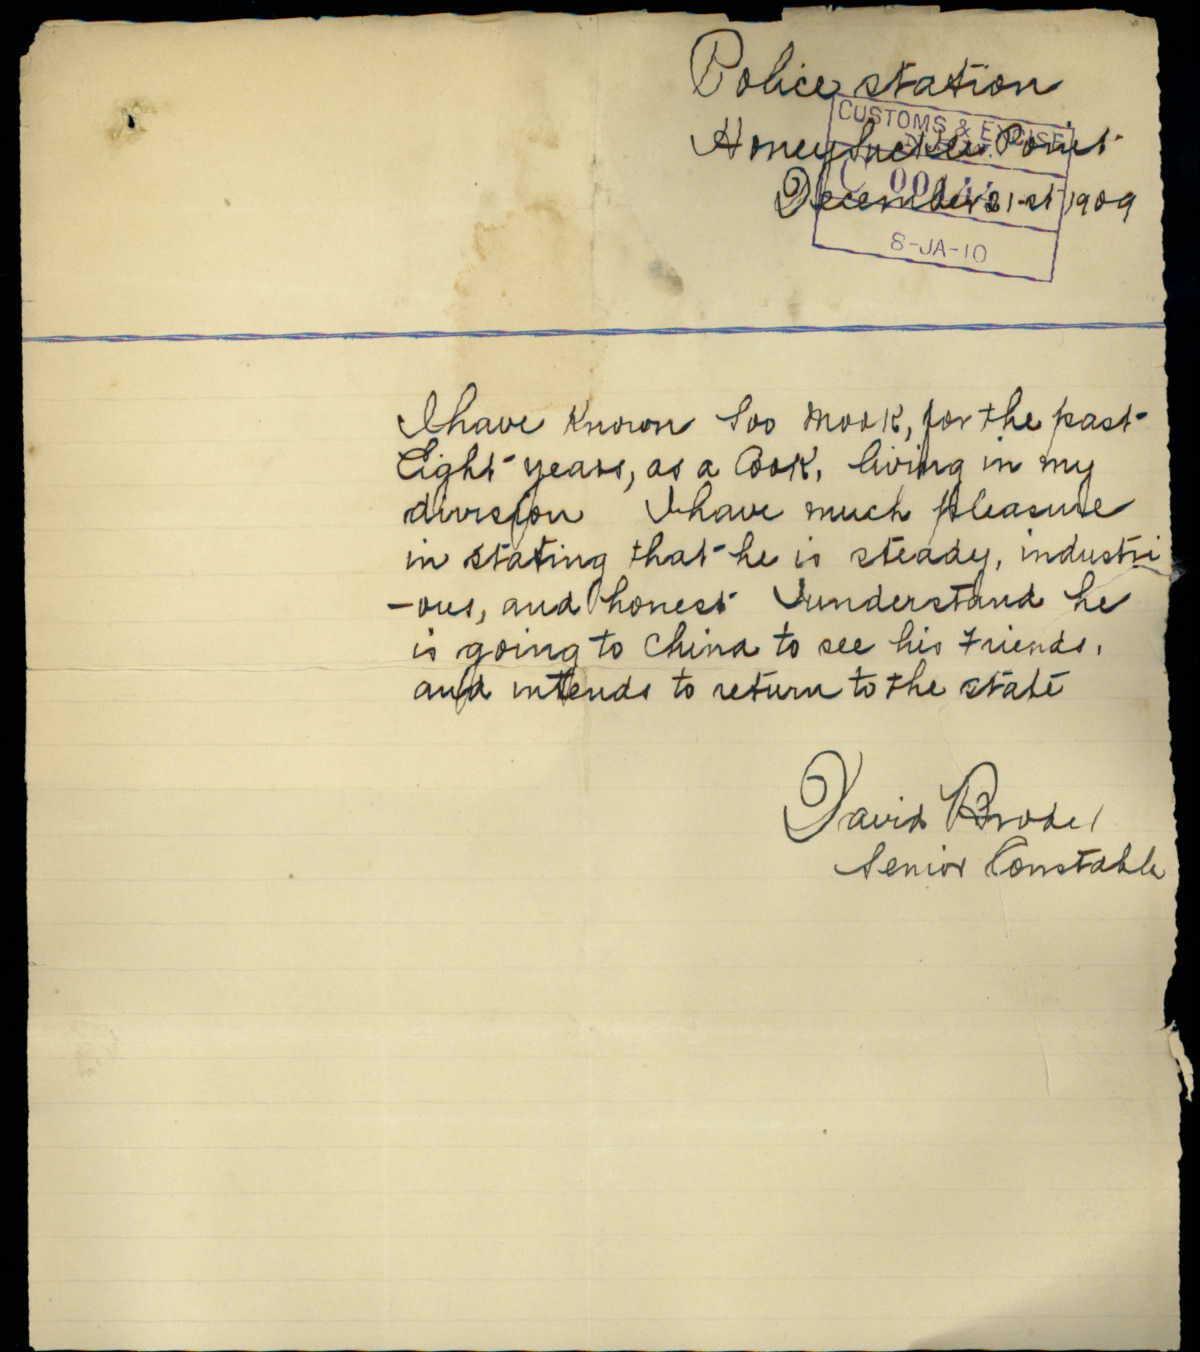 Police station
Honeysuckle Point
December 21st 1909
CUSTOMS & EXCISE
8-JA-10
I have known Soo Mook, for the past
Eight years, as a Cook, living in my
division I have much pleasure
in stating that he is steady, industri
-ous, and honest I understand he
is going to China to see his Friends,
and intends to return to the state
David
Senior Constable